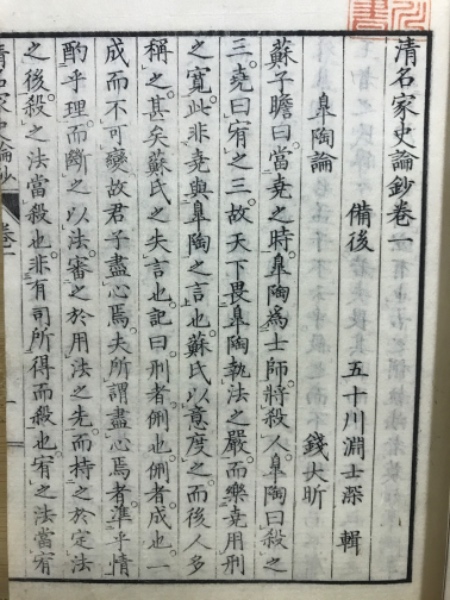 清名家史論鈔卷一
備後 五十川淵士深 輯
皐陶論 錢大昕
蘇子瞻曰。當堯之時。皐陶爲士師。將殺人。皐陶曰殺之
三。堯曰宥之三。故天下畏皐陶執法之嚴。而樂堯用刑
之寛。此非堯與皐陶之言也。蘇氏以意度之。而後人多
稱之。甚矣蘇氏之失言也。記曰。刑者侀也。侀者成也。一
成而不可變。故君子盡心焉。夫所謂盡心焉者。準乎情
酌乎理。而斷之以法。審之於用法之先。而持之於定法
之後。殺之法當殺也。非有司所得而殺也。宥之法當宥
清名家史論鈔 卷一